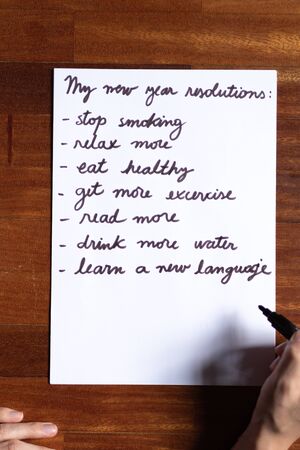 My new year resolutions:
- stop smoking
- relax more
- eat healthy
- get more excercise
- read more
- drink more water
- learn a new language